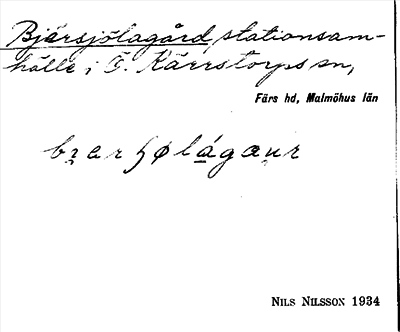 Bjärsjölagård, stationsam-
hälle i Ö. Kärrstorps sn,
Färs hd, Malmöhus län
Nils Nilsson 1934